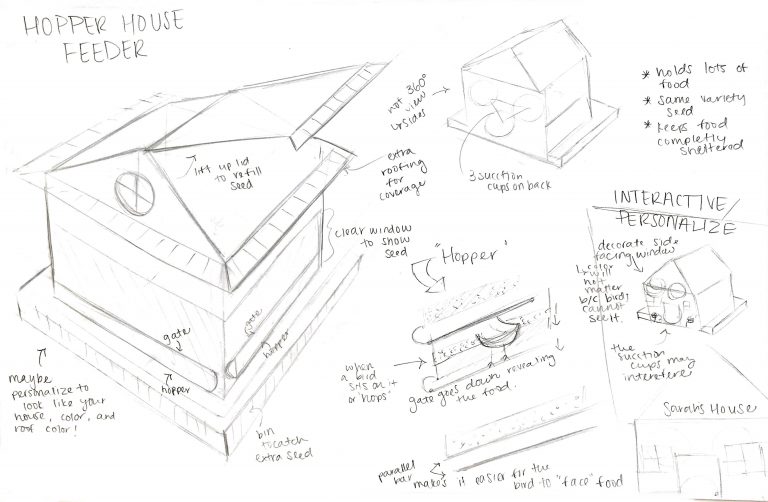 HOPPER HOUSE
FEEDER
lift up lid
to refill
seed
extra
roofing
for
coverage
clear window
to show
seed
gate
hopper
gate
hopper
maybe
personalize to
look like your
house, color, and
roof color!
bin
to catch
extra seed
not 360°
view
4 sides
3 suction
cups on back
* holds lots of
food
* same variety
seed
* keeps food
completly
sheltered
"Hopper"
when
a bird
sits on it
or "hops"
gate goes down revealing
the food.
parallel
bar
makes it easier for the
bird to "face" food
INTERACTIVE/
PERSONALIZE
decorate side
facing window
color
will
not
matter
b/c birds
cannot
see it.
the
suction
cups may
interfere
Sarah's House